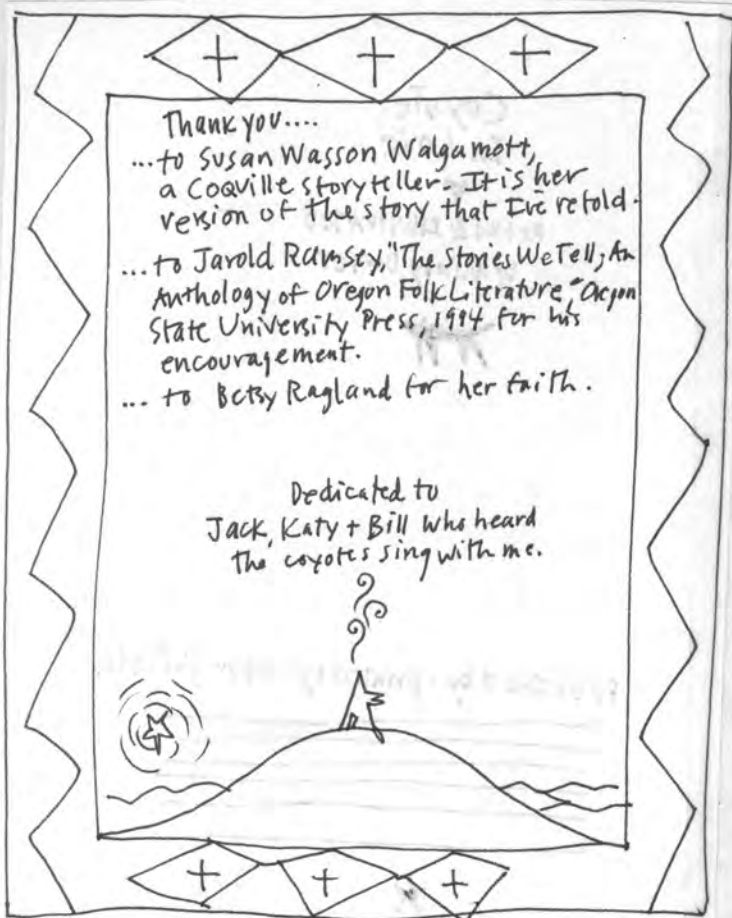 Thank you....
...to Susan Wasson Walgamott,
a Coqville storyteller. It is her
version of the story that I've retold.
...to Jarold Ramsey, "The Stories We Tell; An
Anthology of Oregon Folk Literature," Oregon
State University Press, 1994 for his
encouragement.
... to Betsy Ragland for her faith.
Dedicated to
Jack, Katy + Bill who heard
the coyotes sing with me.